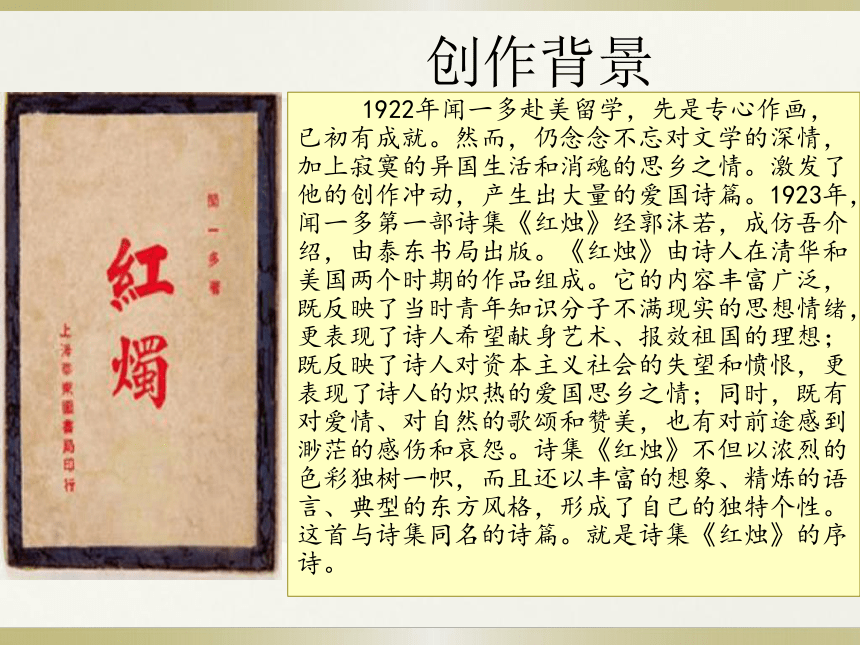 创作背景
闻一多著
紅燭
上海泰東圖書局印行
1922年闻一多赴美留学，先是专心作画，
已初有成就。然而，仍念念不忘对文学的深情，
加上寂寞的异国生活和消魂的思乡之情。激发了
他的创作冲动，产生出大量的爱国诗篇。1923年，
闻一多第一部诗集《红烛》经郭沫若，成仿吾介
绍，由泰东书局出版。《红烛》由诗人在清华和
美国两个时期的作品组成。它的内容丰富广泛，
既反映了当时青年知识分子不满现实的思想情绪，
更表现了诗人希望献身艺术、报效祖国的理想；
既反映了诗人对资本主义社会的失望和愤恨，更
表现了诗人的炽热的爱国思乡之情；同时，既有
对爱情、对自然的歌颂和赞美，也有对前途感到
渺茫的感伤和哀怨。诗集《红烛》不但以浓烈的
色彩独树一帜，而且还以丰富的想象、精炼的语
言、典型的东方风格，形成了自己的独特个性。
这首与诗集同名的诗篇。就是诗集《红烛》的序
诗。